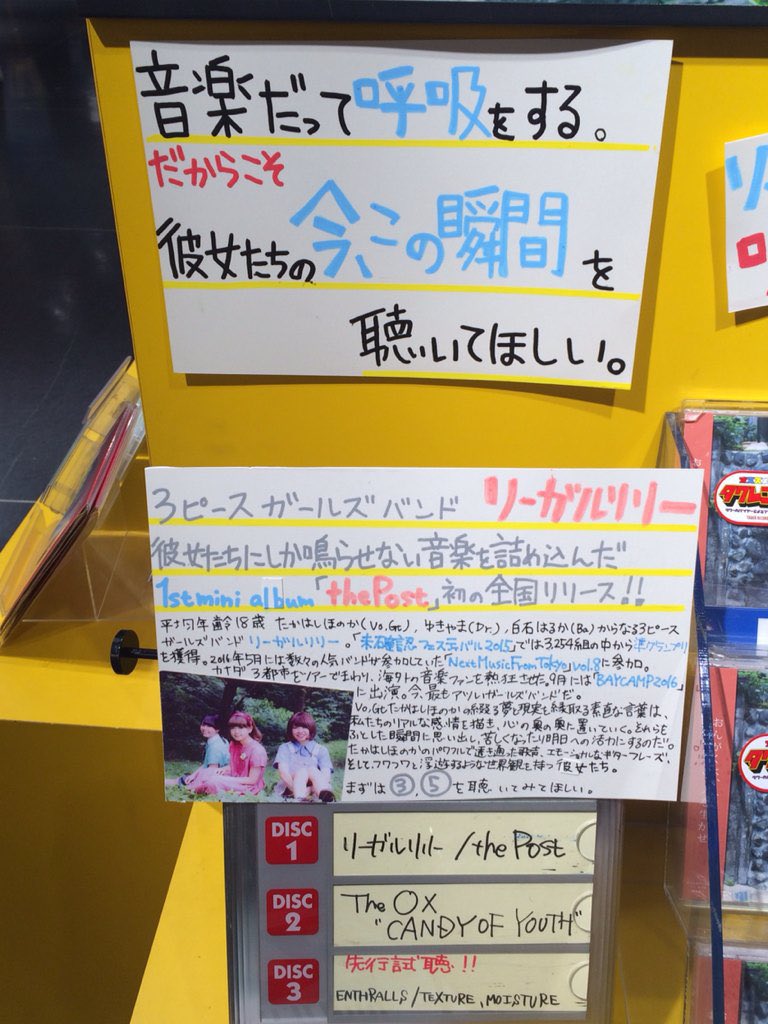 音楽だって呼吸をする。
だからこそ
彼女たちの今、この瞬間を
聴いてほしい。
3ピースガールズバンド リーガルリリー
彼女たちにしか鳴らせない音楽を詰め込んだ
1st mini album「the Post」初の全国リリース!!
平均年齢18歳 たかはしほのか(Vo.Gt.), ゆきやま(Dr.), 白石はるか(Ba)からなる3ピース
ガールズバンド リーガルリリー。「未確認フェスティバル2015」では3,254組の中から準グランプリ
を獲得。2016年5月には数々の人気バンドが参加していた「Next Music From Tokyo」vol.8に参加。
カナダ3都市をツアーでまわり、海外の音楽ファンを熱狂させた。9月には「BAYCAMP2016」
に出演。今、最もアツいガールズバンドだ。
Vo.Gt.たかはしほのかの綴る夢と現実を縁取る素直な言葉は、
私たちのリアルな感情を描き、心の奥の奥に置いていく。それらを
ふとした瞬間に思い出し、苦しくなったり明日への活力にするのだ。
たかはしほのかのパワフルで透き通った歌声、エモーショナルなギターフレーズ、
そして、フワフワと浮遊するような世界観を持つ彼女たち。
まずは③,⑤を聴いてみてほしい。
DISC 1 リーガルリリー/the Post
DISC 2 The OX "CANDY OF YOUTH"
先行試聴!!
DISC 3 ENTHRALLS/TEXTURE, MOISTURE